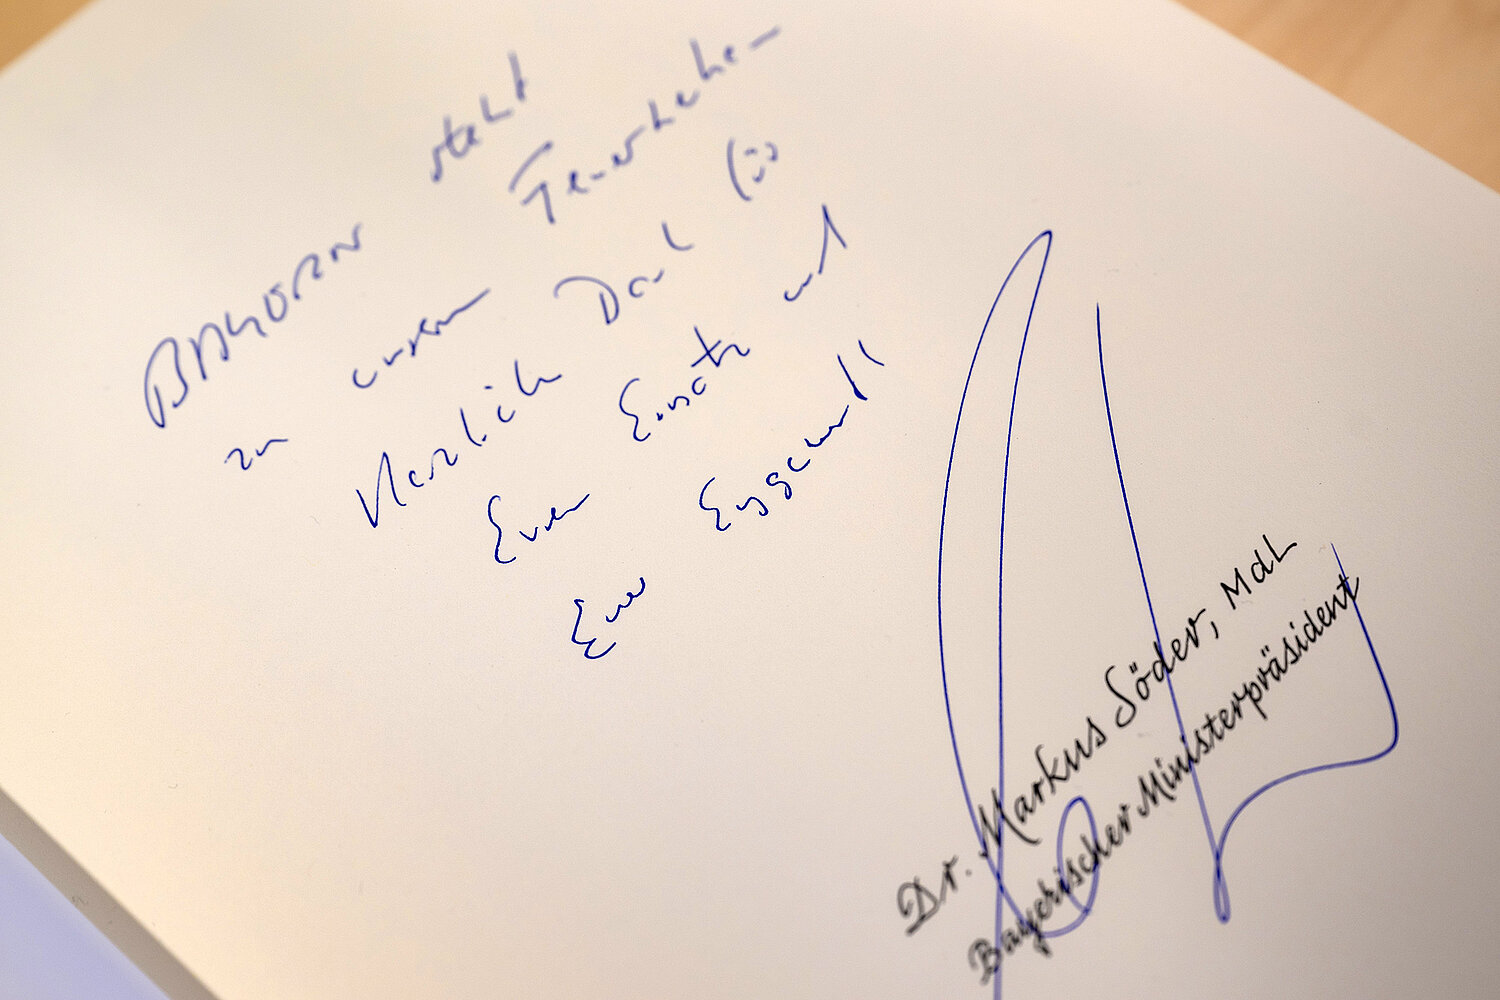 BAYERN steht
zu unseren Feuerwehren
Herzlich Dank für
Euren Einsatz und
Euer Engagement!
Dr. Markus Söder, MdL
Bayerischer Ministerpräsident